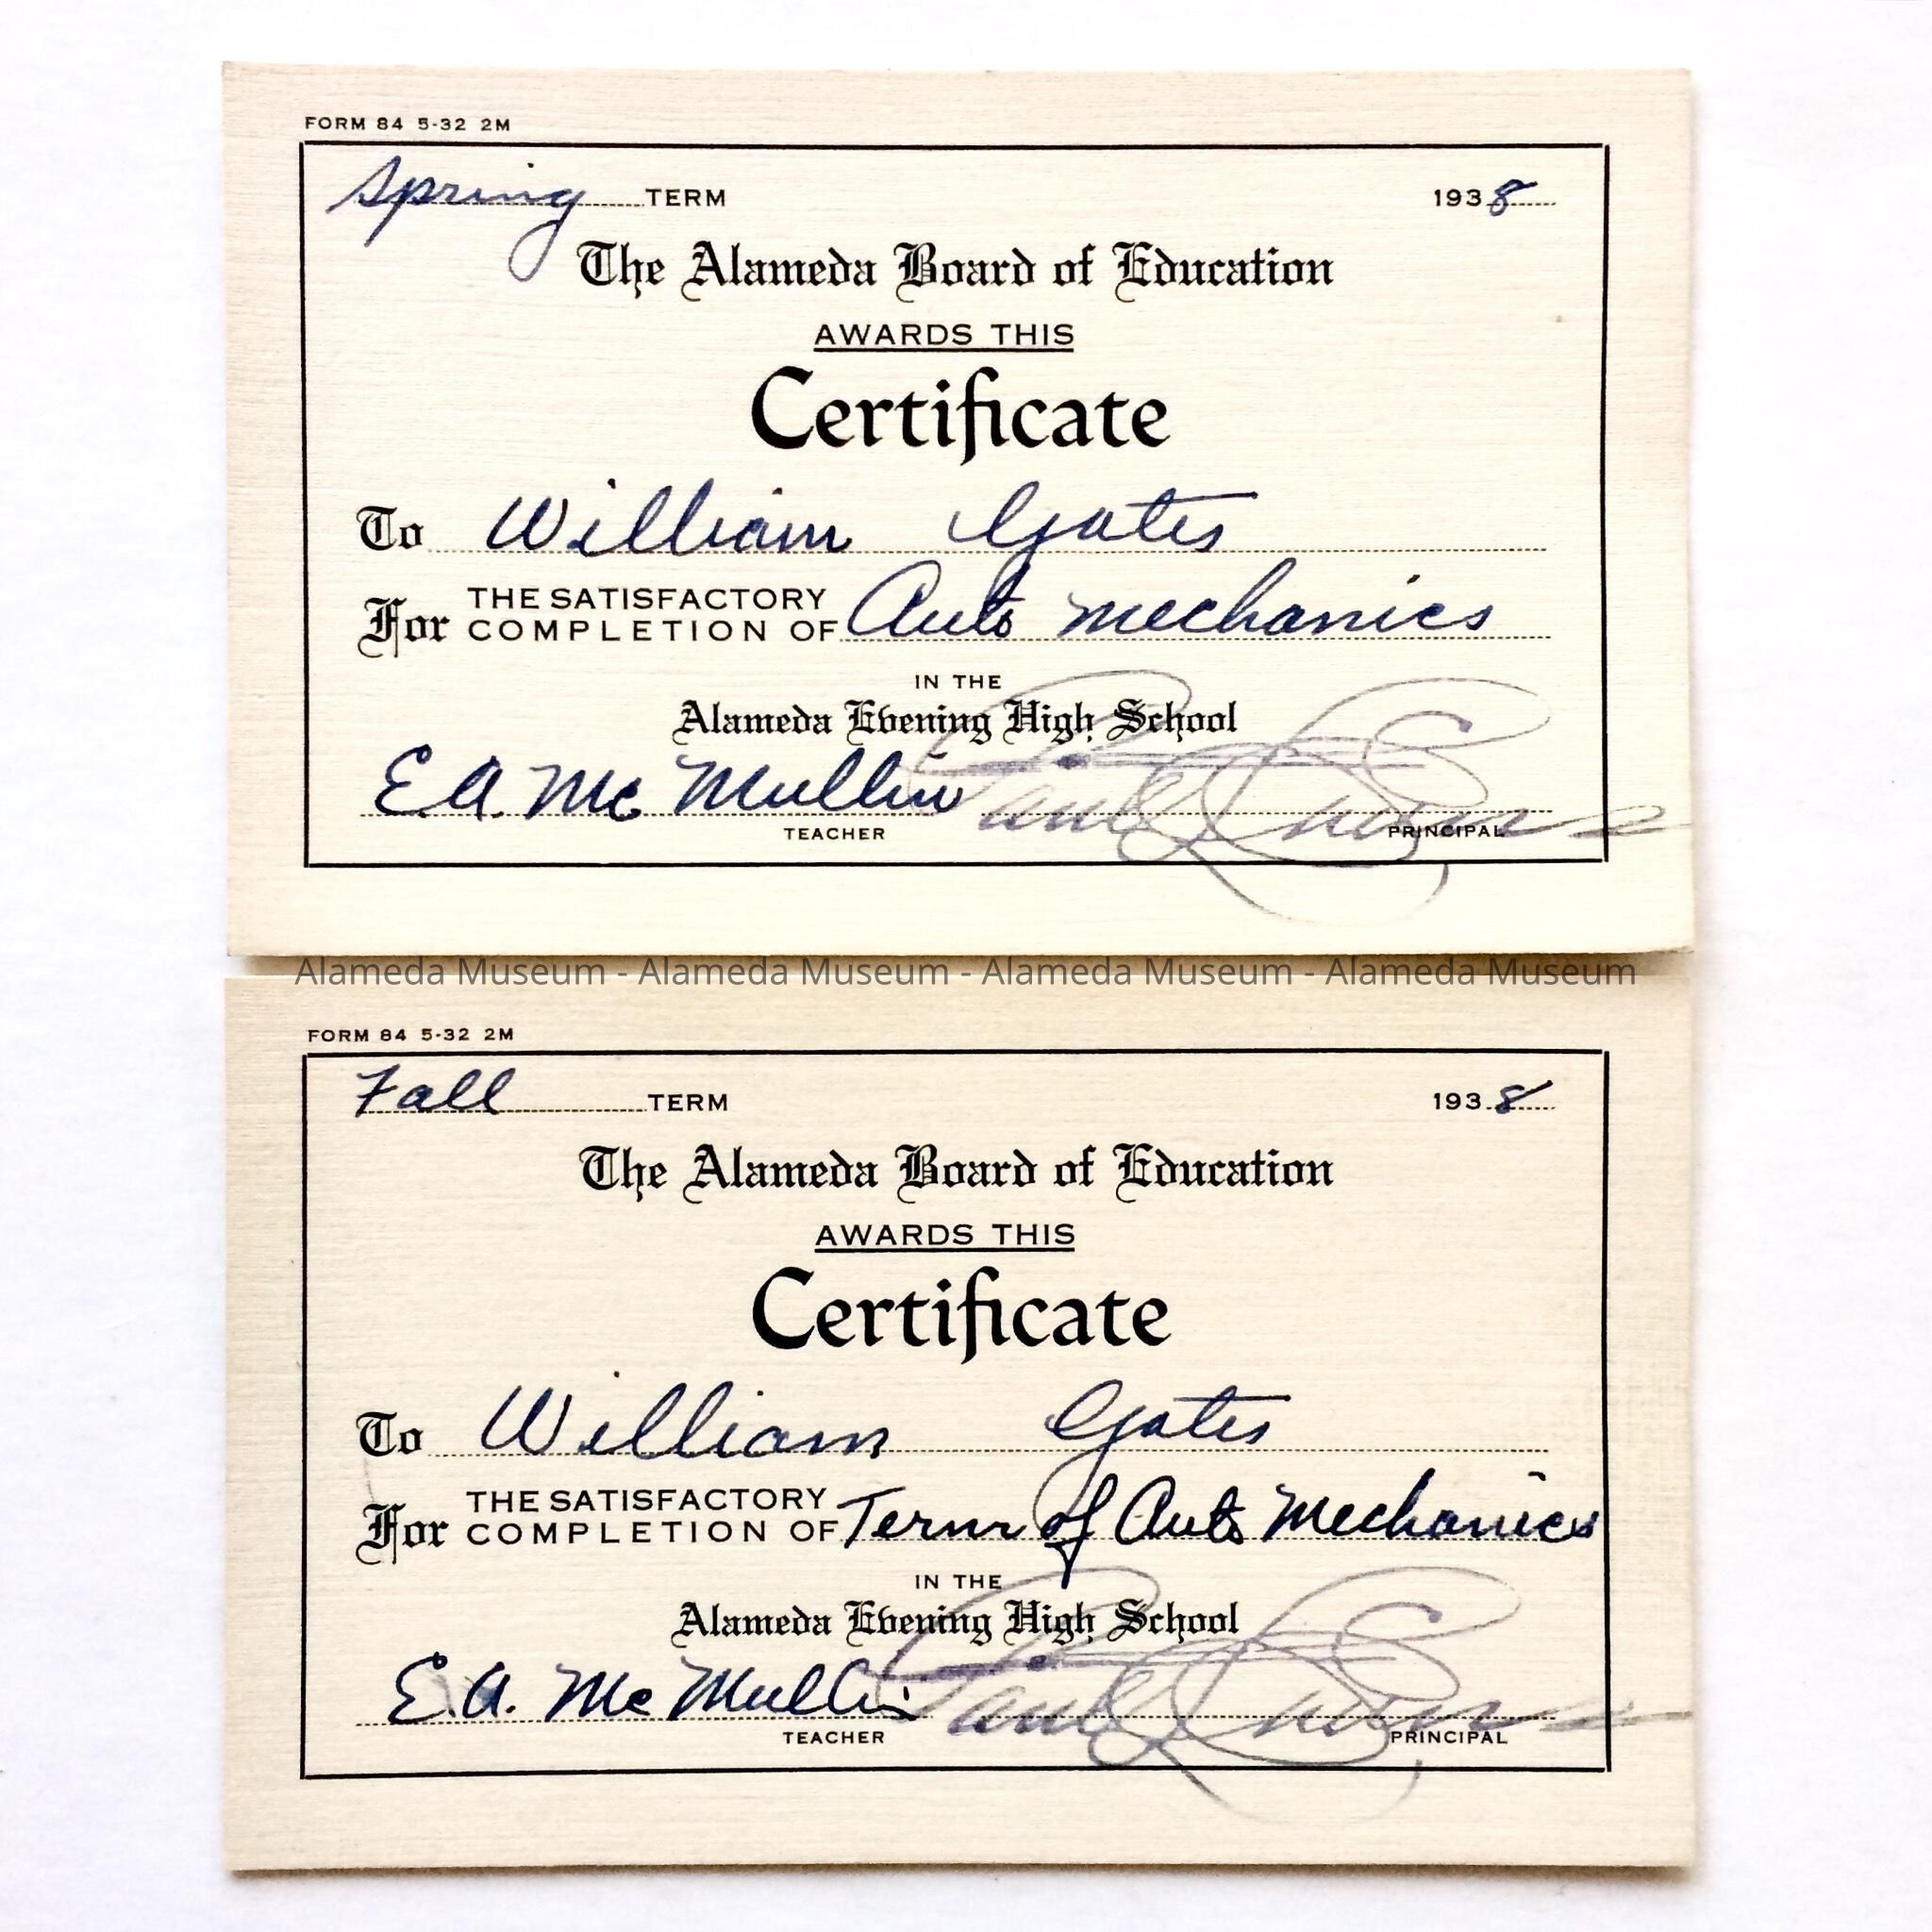 FORM 84 5-32 2M
Spring TERM 1938
The Alameda Board of Education
AWARDS THIS
Certificate
To William Gates
For THE SATISFACTORY COMPLETION OF Auto mechanics
IN THE
Alameda Evening High School
E.A. McMullin
TEACHER PRINCIPAL
Alameda Museum - Alameda Museum - Alameda Museum - Alameda Museum
FORM 84 5-32 2M
Fall TERM 1938
The Alameda Board of Education
AWARDS THIS
Certificate
To William Gates
For THE SATISFACTORY COMPLETION OF Term of Auto Mechanics
IN THE
Alameda Evening High School
E.A. McMullin
TEACHER PRINCIPAL